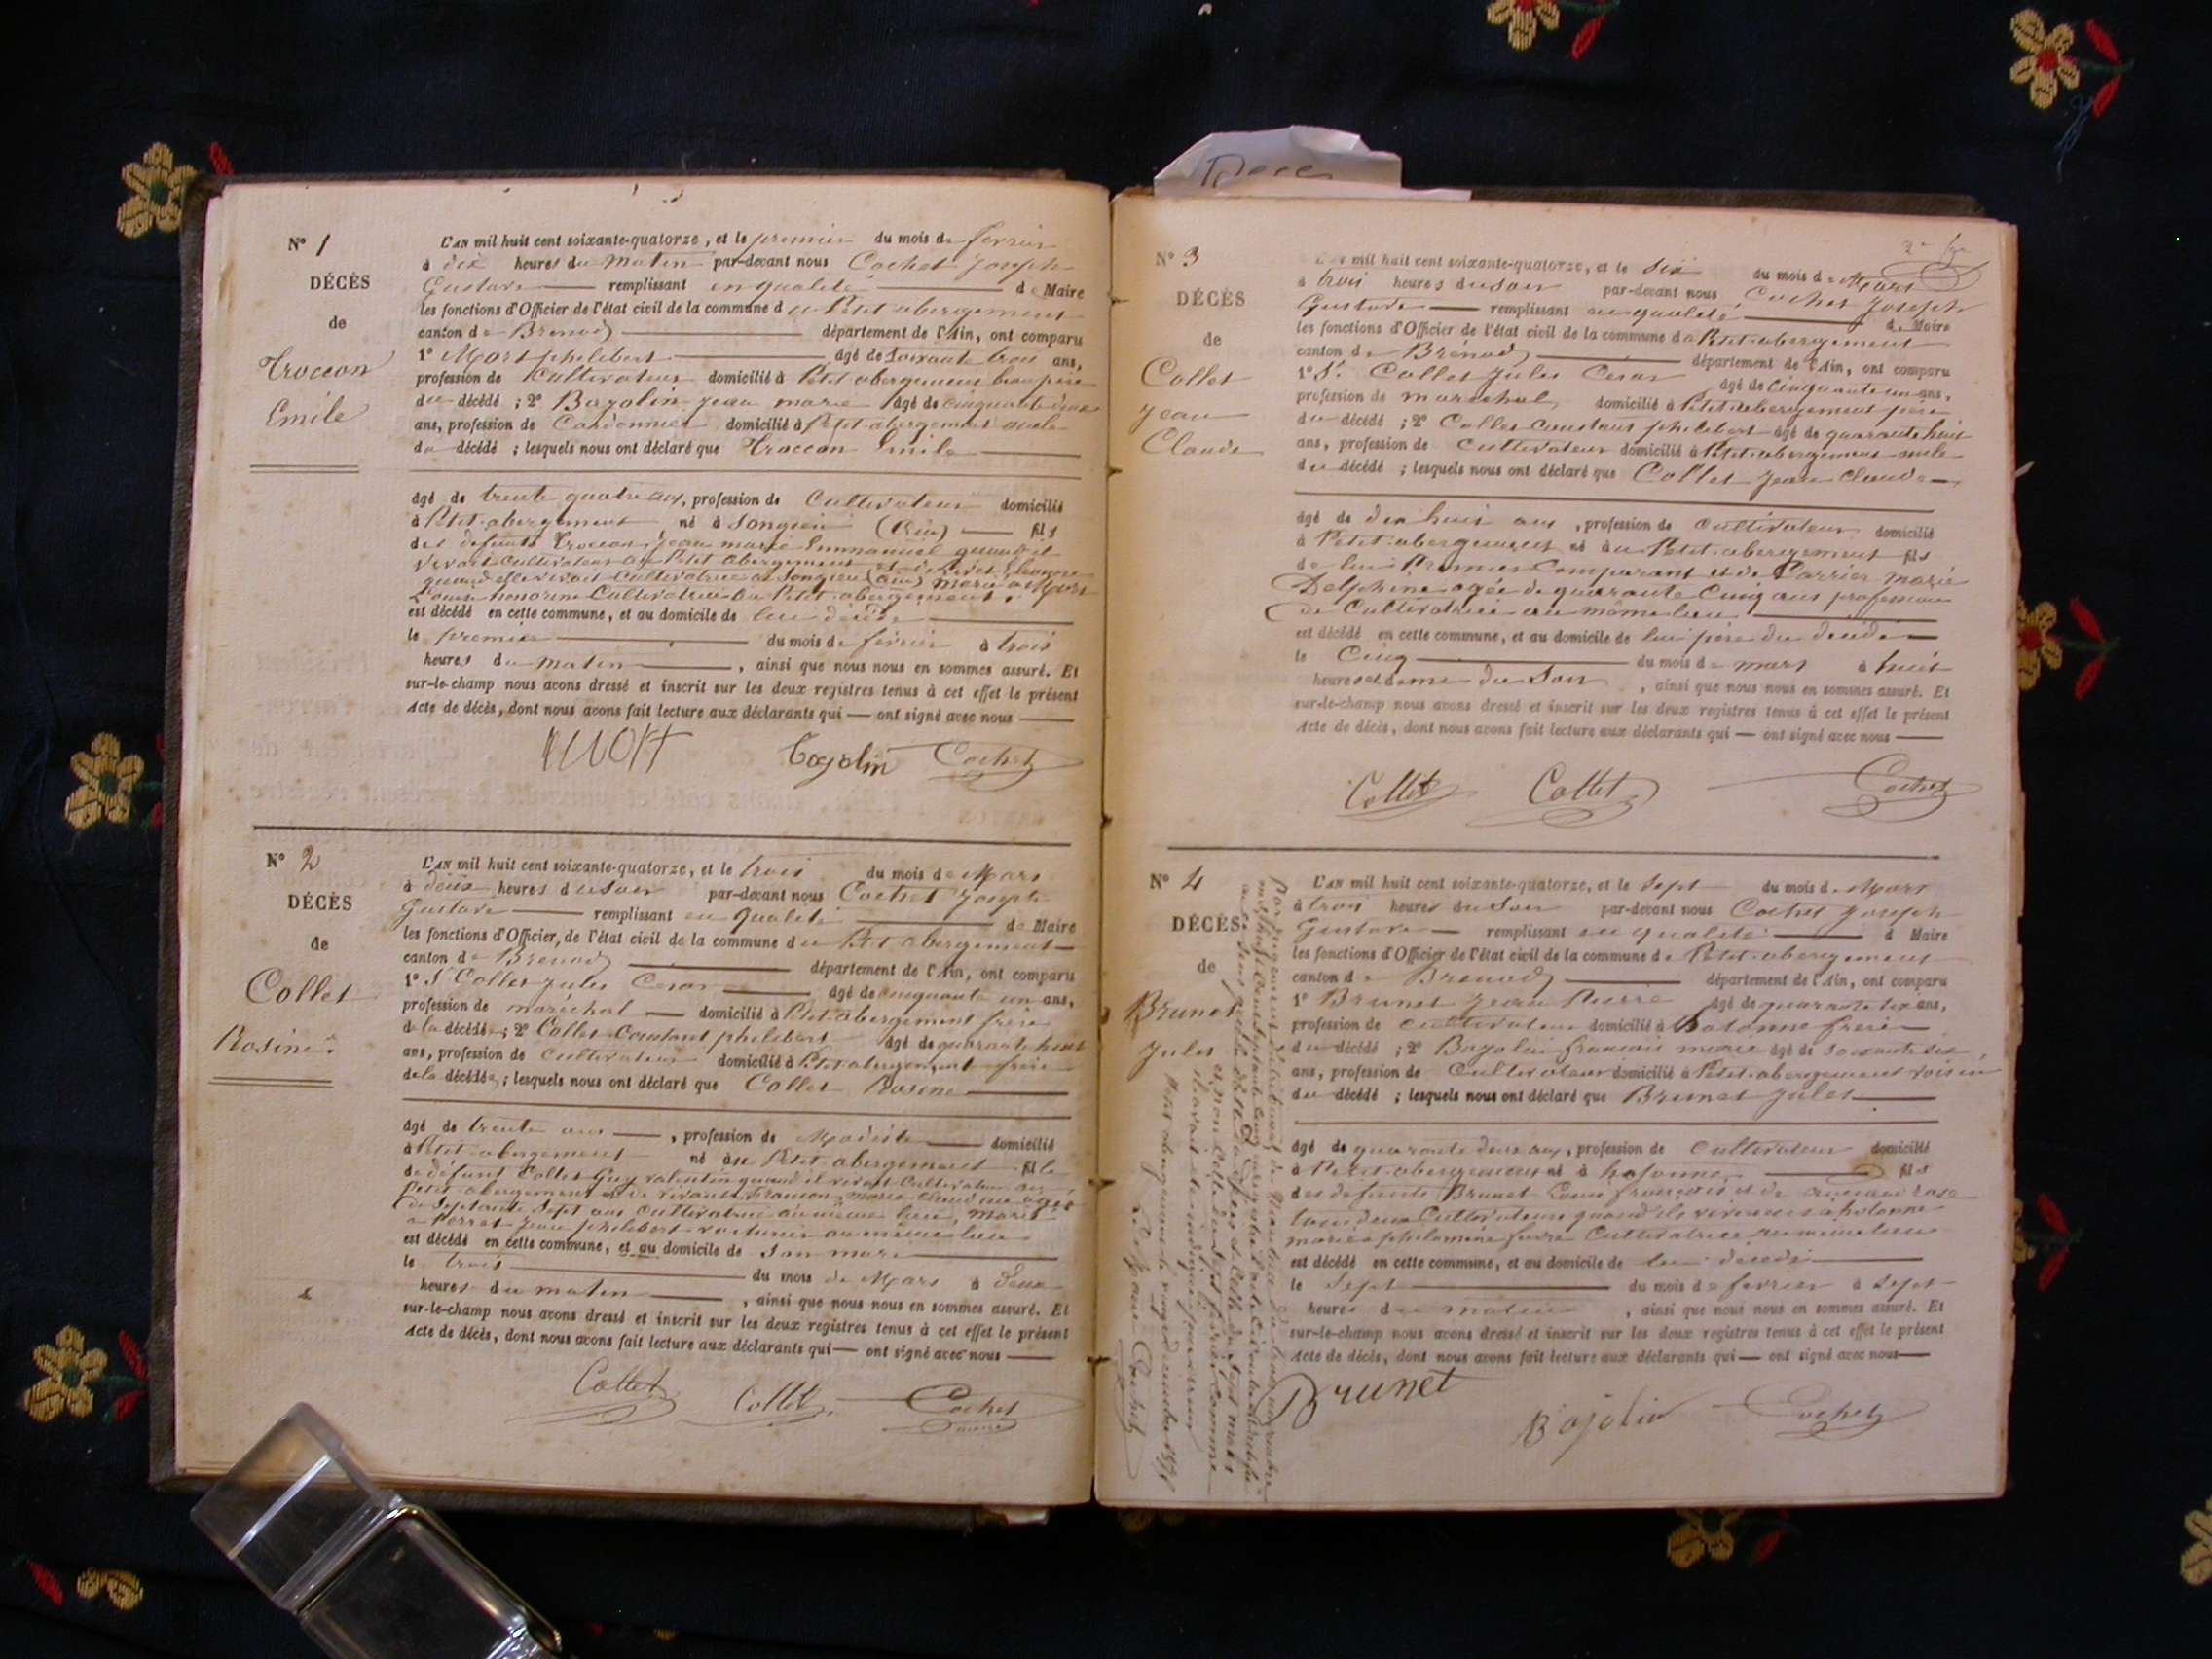 Nº 1
DÉCÈS
de
Troccon
Emile
L'AN mil huit cent soixante-quatorze, et le premier du mois de fevrier
à dix heures du matin par-devant nous Cochet Joseph
Gustave remplissant en qualité de Maire
les fonctions d'Officier de l'état civil de la commune du Petit abergement
canton de Brenod département de l'Ain, ont comparu
1º Mort philibert âgé de Soixante trois ans,
profession de Cultivateur domicilié à Petit abergement beau père
du décédé ; 2º Bazolin jean marie âgé de cinquante deux
ans, profession de Cordonnier domicilié à Petit abergement oncle
du décédé ; lesquels nous ont déclaré que Troccon Emile
âgé de trente quatre ans, profession de Cultivateur domicilié
à Petit abergement né à Songieu (Ain) fils
des defunts Troccon jean marie Emmanuel quand il
vivait cultivateur au Petit Abergement et de
quand elle vivait Cultivatrice à Songieu (Ain) marié à Mort
Louise honorine Cultivatrice au Petit abergement.
est décédé en cette commune, et au domicile de lui décédé
le premier du mois de février à trois
heures du matin, ainsi que nous nous en sommes assuré. Et
sur-le-champ nous avons dressé et inscrit sur les deux registres tenus à cet effet le présent
Acte de décès, dont nous avons fait lecture aux déclarants qui — ont signé avec nous
MORT Bazolin Cochet
Nº 2
DÉCÈS
de
Collet
Rosine
L'AN mil huit cent soixante-quatorze, et le trois du mois de Mars
à deux heures du soir par-devant nous Cochet Joseph
Gustave remplissant en qualité de Maire
les fonctions d'Officier de l'état civil de la commune du Petit abergement
canton de Brenod département de l'Ain, ont comparu
1º Sr Collet Jules Cesar âgé de cinquante un ans,
profession de maréchal domicilié à Petit abergement frère
de la décédée ; 2º Collet Constant philibert âgé de quarante huit
ans, profession de cultivateur domicilié à Petit abergement frère
de la décédée ; lesquels nous ont déclaré que Collet Rosine
âgé de trente ans, profession de Modiste domicilié
à Petit abergement né au Petit abergement fille
de défunt Collet Guy valentin quand il vivait Cultivateur au
Petit abergement et de vivante Francon marie Claudine agée
de Septante Sept ans Cultivatrice au même lieu, marié
à Perret Jean philibert voiturier au même lieu
est décédé en cette commune, et au domicile de Son mari
le trois du mois de Mars à deux
heures du matin, ainsi que nous nous en sommes assuré. Et
sur-le-champ nous avons dressé et inscrit sur les deux registres tenus à cet effet le présent
Acte de décès, dont nous avons fait lecture aux déclarants qui — ont signé avec nous
Collet Collet Cochet
maire
Nº 3
DÉCÈS
de
Collet
Jean
Claude
L'AN mil huit cent soixante-quatorze, et le Six du mois de Mars
à trois heures du soir par-devant nous Cochet Joseph
Gustave remplissant en qualité de Maire
les fonctions d'Officier de l'état civil de la commune de Petit abergement
canton de Brénod département de l'Ain, ont comparu
1º Sr Collet Jules César âgé de cinquante un ans,
profession de maréchal domicilié à Petit abergement père
du décédé ; 2º Collet Constant philibert âgé de quarante huit
ans, profession de cultivateur domicilié à Petit abergement oncle
du décédé ; lesquels nous ont déclaré que Collet Jean Claude
âgé de dix huit ans, profession de cultivateur domicilié
à Petit abergement né au Petit abergement fils
de lui Premier Comparant et de Carrier marie
Delphine agée de quarante Cinq ans profession
de Cultivatrice au même lieu
est décédé en cette commune, et au domicile de lui père du décédé
le Cinq du mois de mars à huit
heures et demie du Soir, ainsi que nous nous en sommes assuré. Et
sur-le-champ nous avons dressé et inscrit sur les deux registres tenus à cet effet le présent
Acte de décès, dont nous avons fait lecture aux déclarants qui — ont signé avec nous
Collet Collet Cochet
Nº 4
DÉCÈS
de
Brunet
Jules
L'AN mil huit cent soixante-quatorze, et le Sept du mois de Mars
à trois heures du Soir par-devant nous Cochet Joseph
Gustave remplissant en qualité d Maire
les fonctions d'Officier de l'état civil de la commune de Petit abergement
canton de Brenod département de l'Ain, ont comparu
1º Brunet Jean Pierre âgé de quarante six ans,
profession de cultivateur domicilié à hotonne frère
du décédé ; 2º Bazolin francois marie âgé de soixante six
ans, profession de Cultivateur domicilié à Petit abergement voisin
du décédé ; lesquels nous ont déclaré que Brunet Jules
âgé de quarante deux ans, profession de cultivateur domicilié
à Petit abergement né à hotonne fils
des defunts Brunet Louis françois et de rose
tous deux Cultivateurs quand ils vivaient à hotonne
marié à philomène Cultivatrice au même lieu
est décédé en cette commune, et au domicile de lui décédé
le Sept du mois de fevrier à Sept
heures du matin, ainsi que nous nous en sommes assuré. Et
sur-le-champ nous avons dressé et inscrit sur les deux registres tenus à cet effet le présent
Acte de décès, dont nous avons fait lecture aux déclarants qui — ont signé avec nous
Brunet Bajolin Cochet
Décès